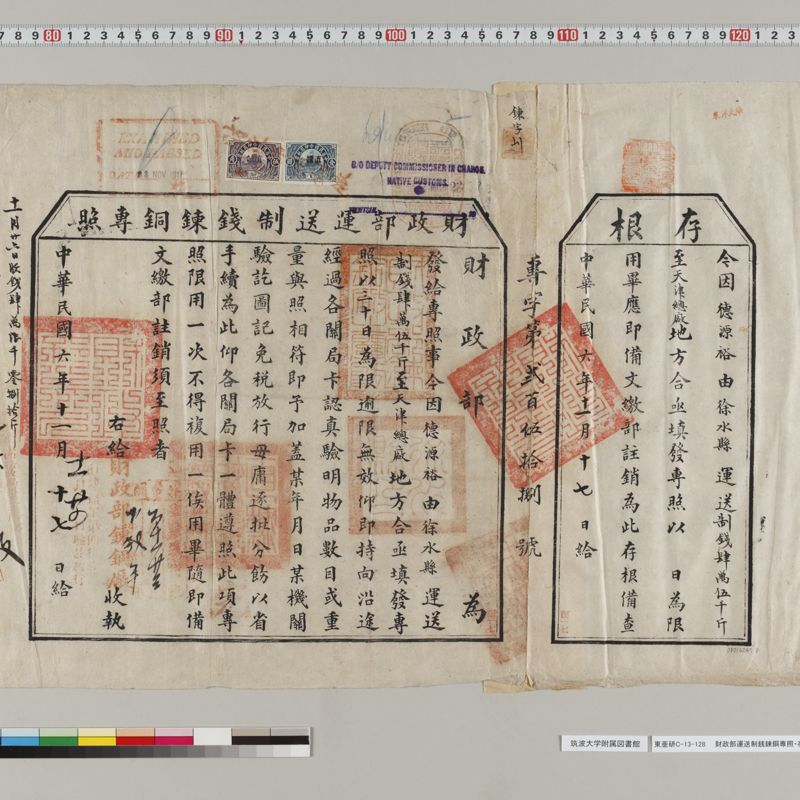 存根
令因 德源裕 由 徐水縣 運送制錢肆萬伍千斤
至天津總廠地方合亟填發專照以 日為限
用畢應即備文繳部註銷為此存根備查
中華民國六年十一月十七日給
專字第貳百伍拾捌號
財政部運送制錢鍊銅專照
財政部 為
發給專照事令因 德源裕 由 徐水縣 運送
制錢肆萬伍千斤至天津總廠地方合亟填發專
照以三十日為限逾限無效仰即持向沿途
經過各關局卡認真驗明物品數目或重
量與照相符即予加蓋某年月日某機關
驗訖圖記免稅放行毋庸逐批分飭以省
手續為此仰各關局卡一體遵照此項專
照限用一次不得複用一俟用畢隨即備
文繳部註銷須至照者
右給
收執
中華民國六年十一月十七日給
C/O DEPUTY COMMISSIONER IN CHARGE.
NATIVE CUSTOMS.
TIENTSIN
NOV
7 8 9 80 1 2 3 4 5 6 7 8 9 90 1 2 3 4 5 6 7 8 9 100 1 2 3 4 5 6 7 8 9 110 1 2 3 4 5 6 7 8 9 120 1 2 3
筑波大学附属図書館
東亜研C-13-128 財政部運送制銭錬銅専照・存